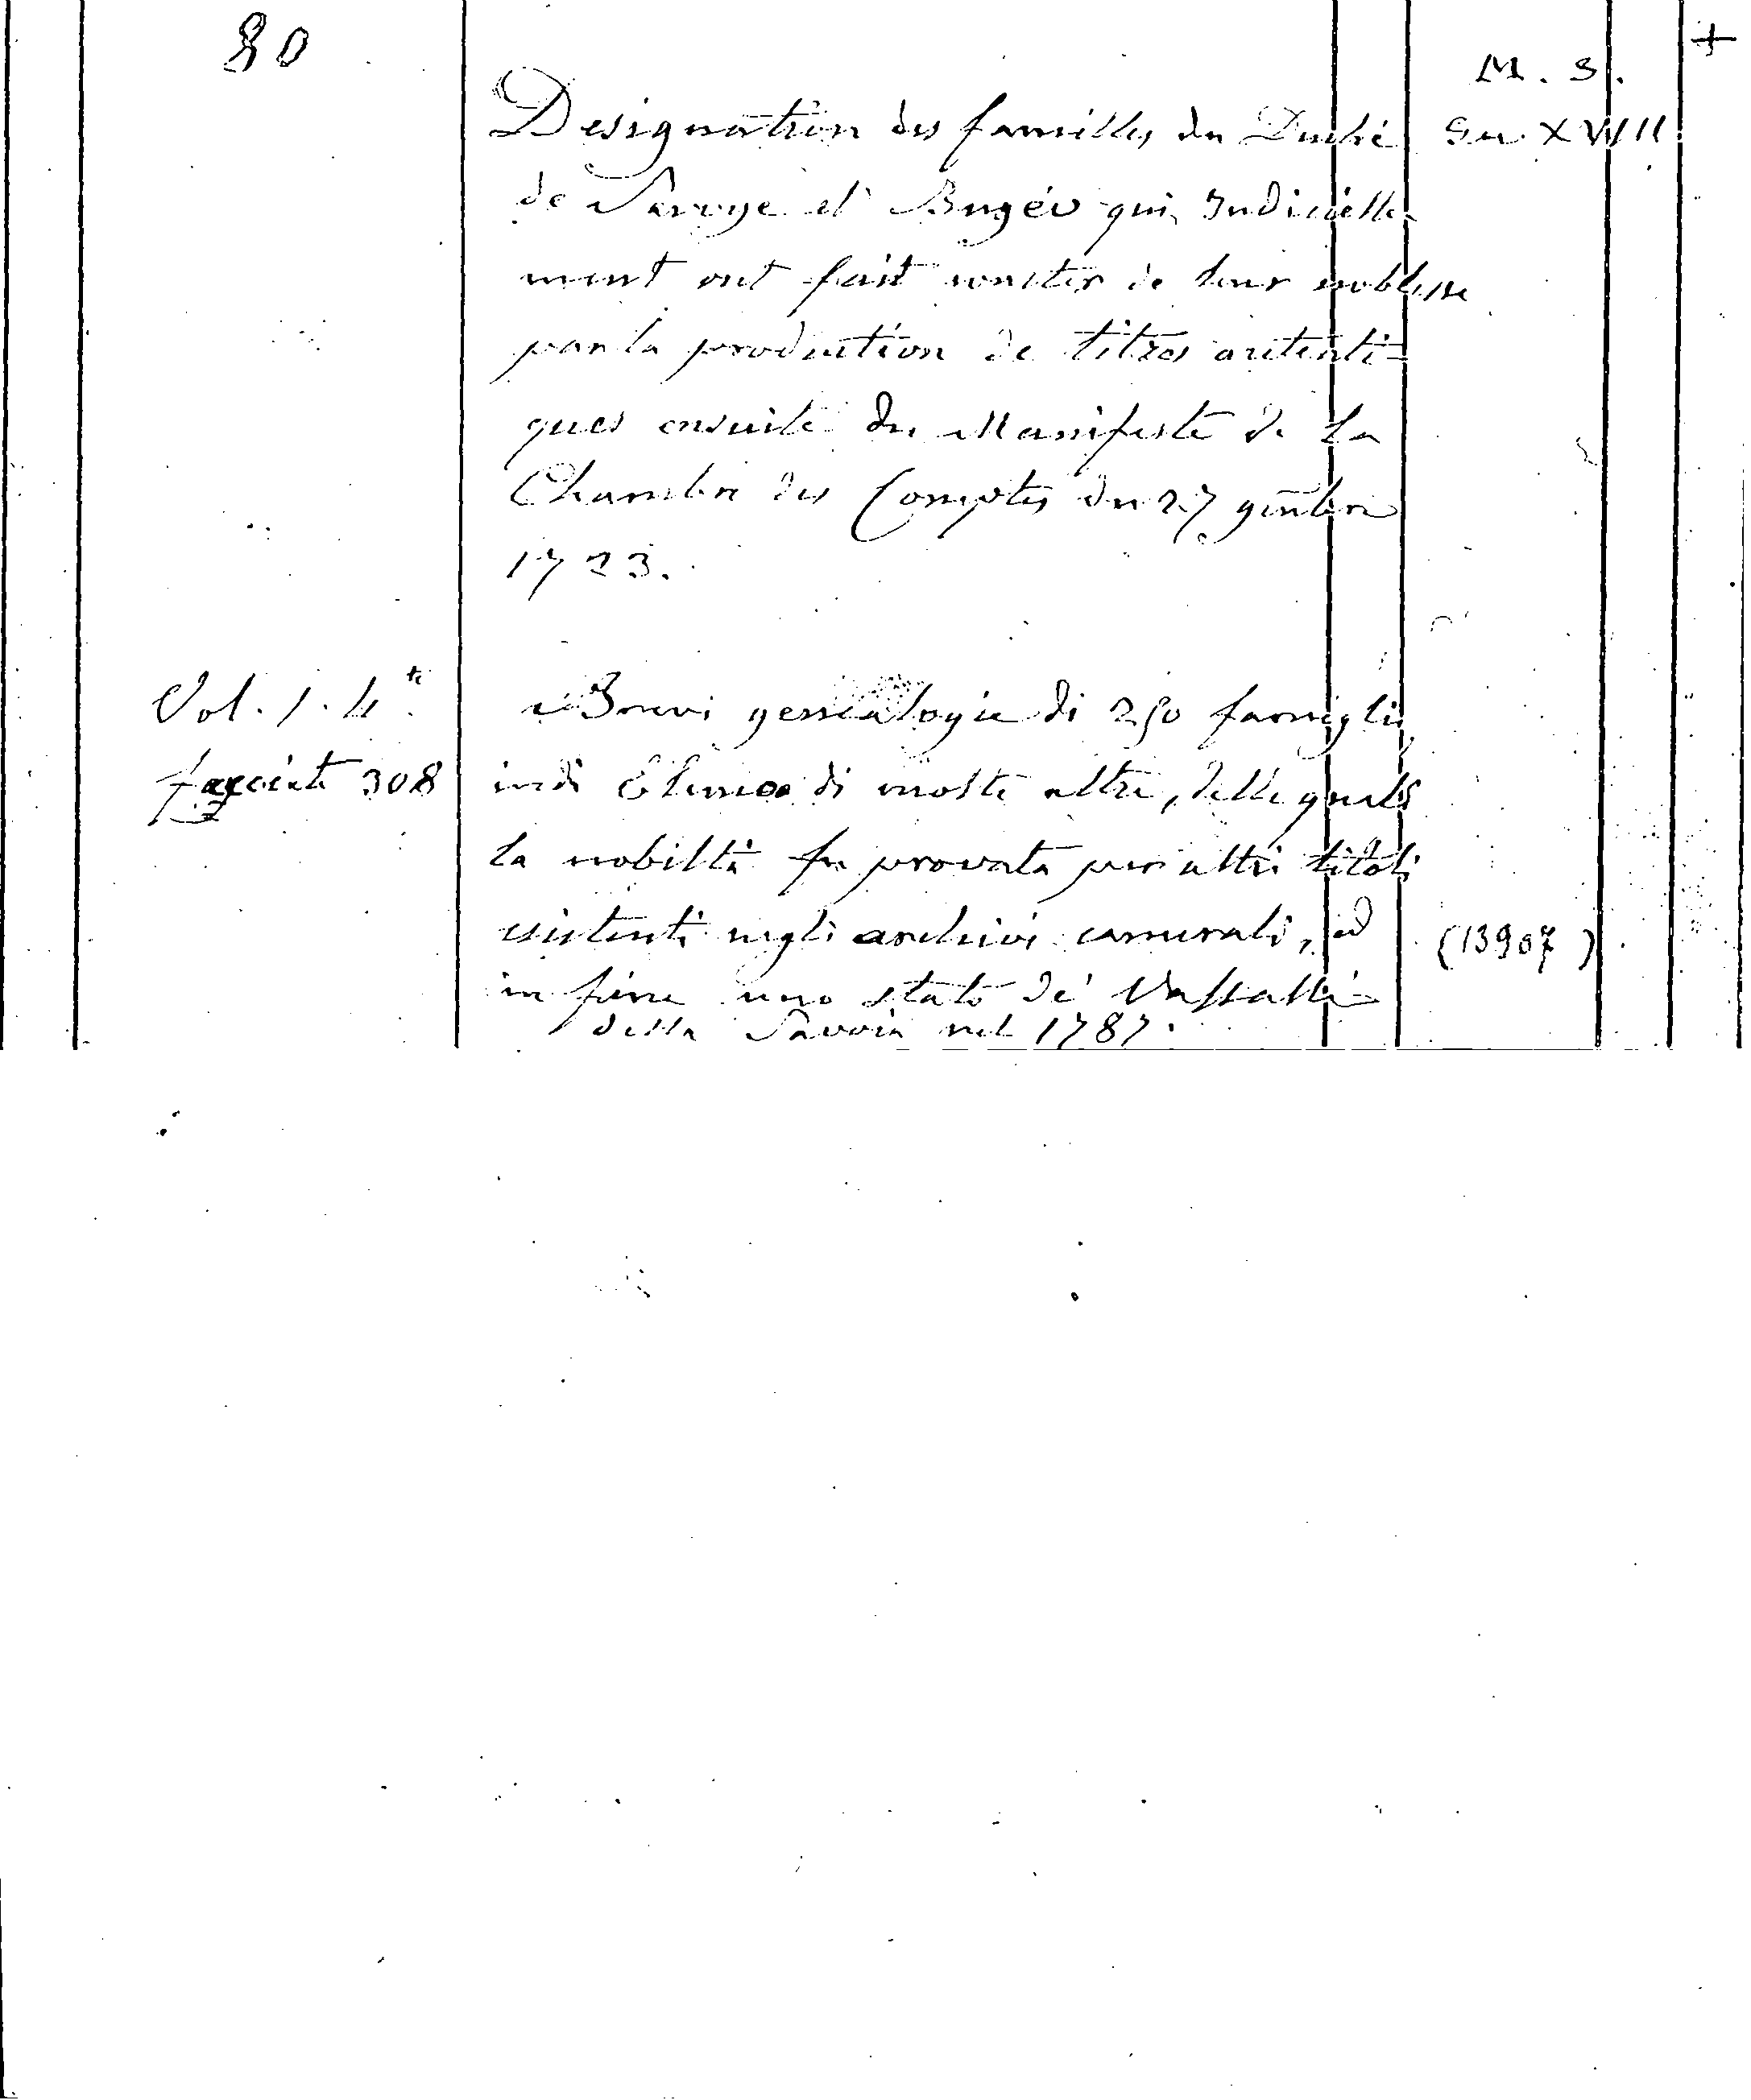 80
M. S.
+
Designation des familles du Duché
Sec. XVIII
de Savoye et Bugéo qui Indicielle-
ment ont fait conster de leur noblesse
par la production de titres autenti=
ques ensuite du Manifeste de la
Chambre des Comptes du 27 9mbre
1723.
Vol. 1. 4to
Brevi genealogie di 250 famiglie,
facciate 308
indi Elenco di molte altre, delle quali
la nobiltà fu provata per altri titoli
esistenti negli archivi camerali, ed
(13907)
in fine uno stato de' Vassalli
della Savoia nel 1787.